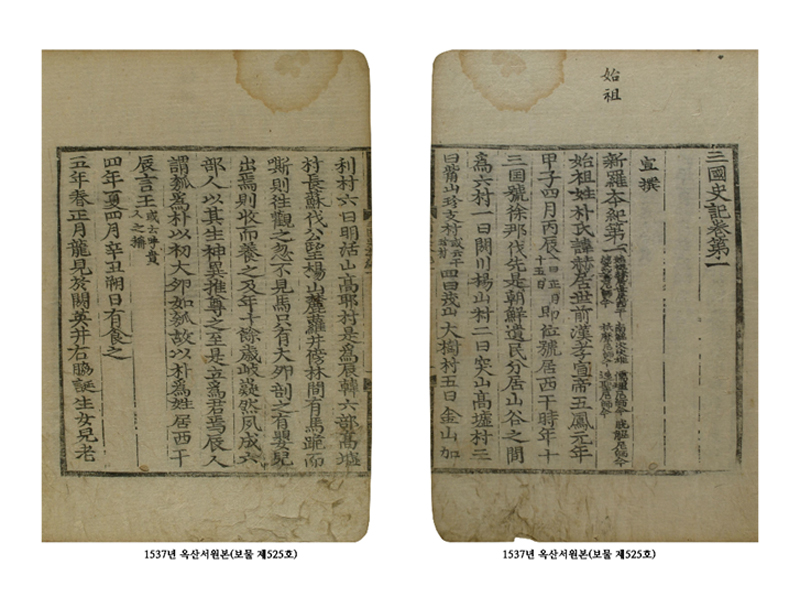 始祖
三國史記卷第一
宣撰
新羅本紀第一 南解次次雄 儒理尼師今 脫解尼師今 婆娑尼師今 祇摩尼師今 逸聖尼師今
始祖姓朴氏諱赫居世前漢孝宣帝五鳳元年
甲子四月丙辰一曰正月十五日即位號居西干時年十
三國號徐那伐先是朝鮮遺民分居山谷之間
爲六村一曰閼川楊山村二曰突山高墟村三
曰觜山珍支村或云干珍村四曰茂山大樹村五曰金山加
利村六曰明活山高耶村是爲辰韓六部高墟
村長蘇伐公望楊山麓蘿井傍林間有馬跪而
嘶則往觀之忽不見馬只有大卵剖之有嬰兒
出焉則收而養之及年十餘歲岐嶷然夙成六
部人以其生神異推尊之至是立爲君焉辰人
謂瓠爲朴以初大卵如瓠故以朴爲姓居西干
辰言王或云呼貴人之稱
四年夏四月辛丑朔日有食之
五年春正月龍見於閼英井右脇誕生女兒老
1537년 옥산서원본(보물 제525호)
1537년 옥산서원본(보물 제525호)